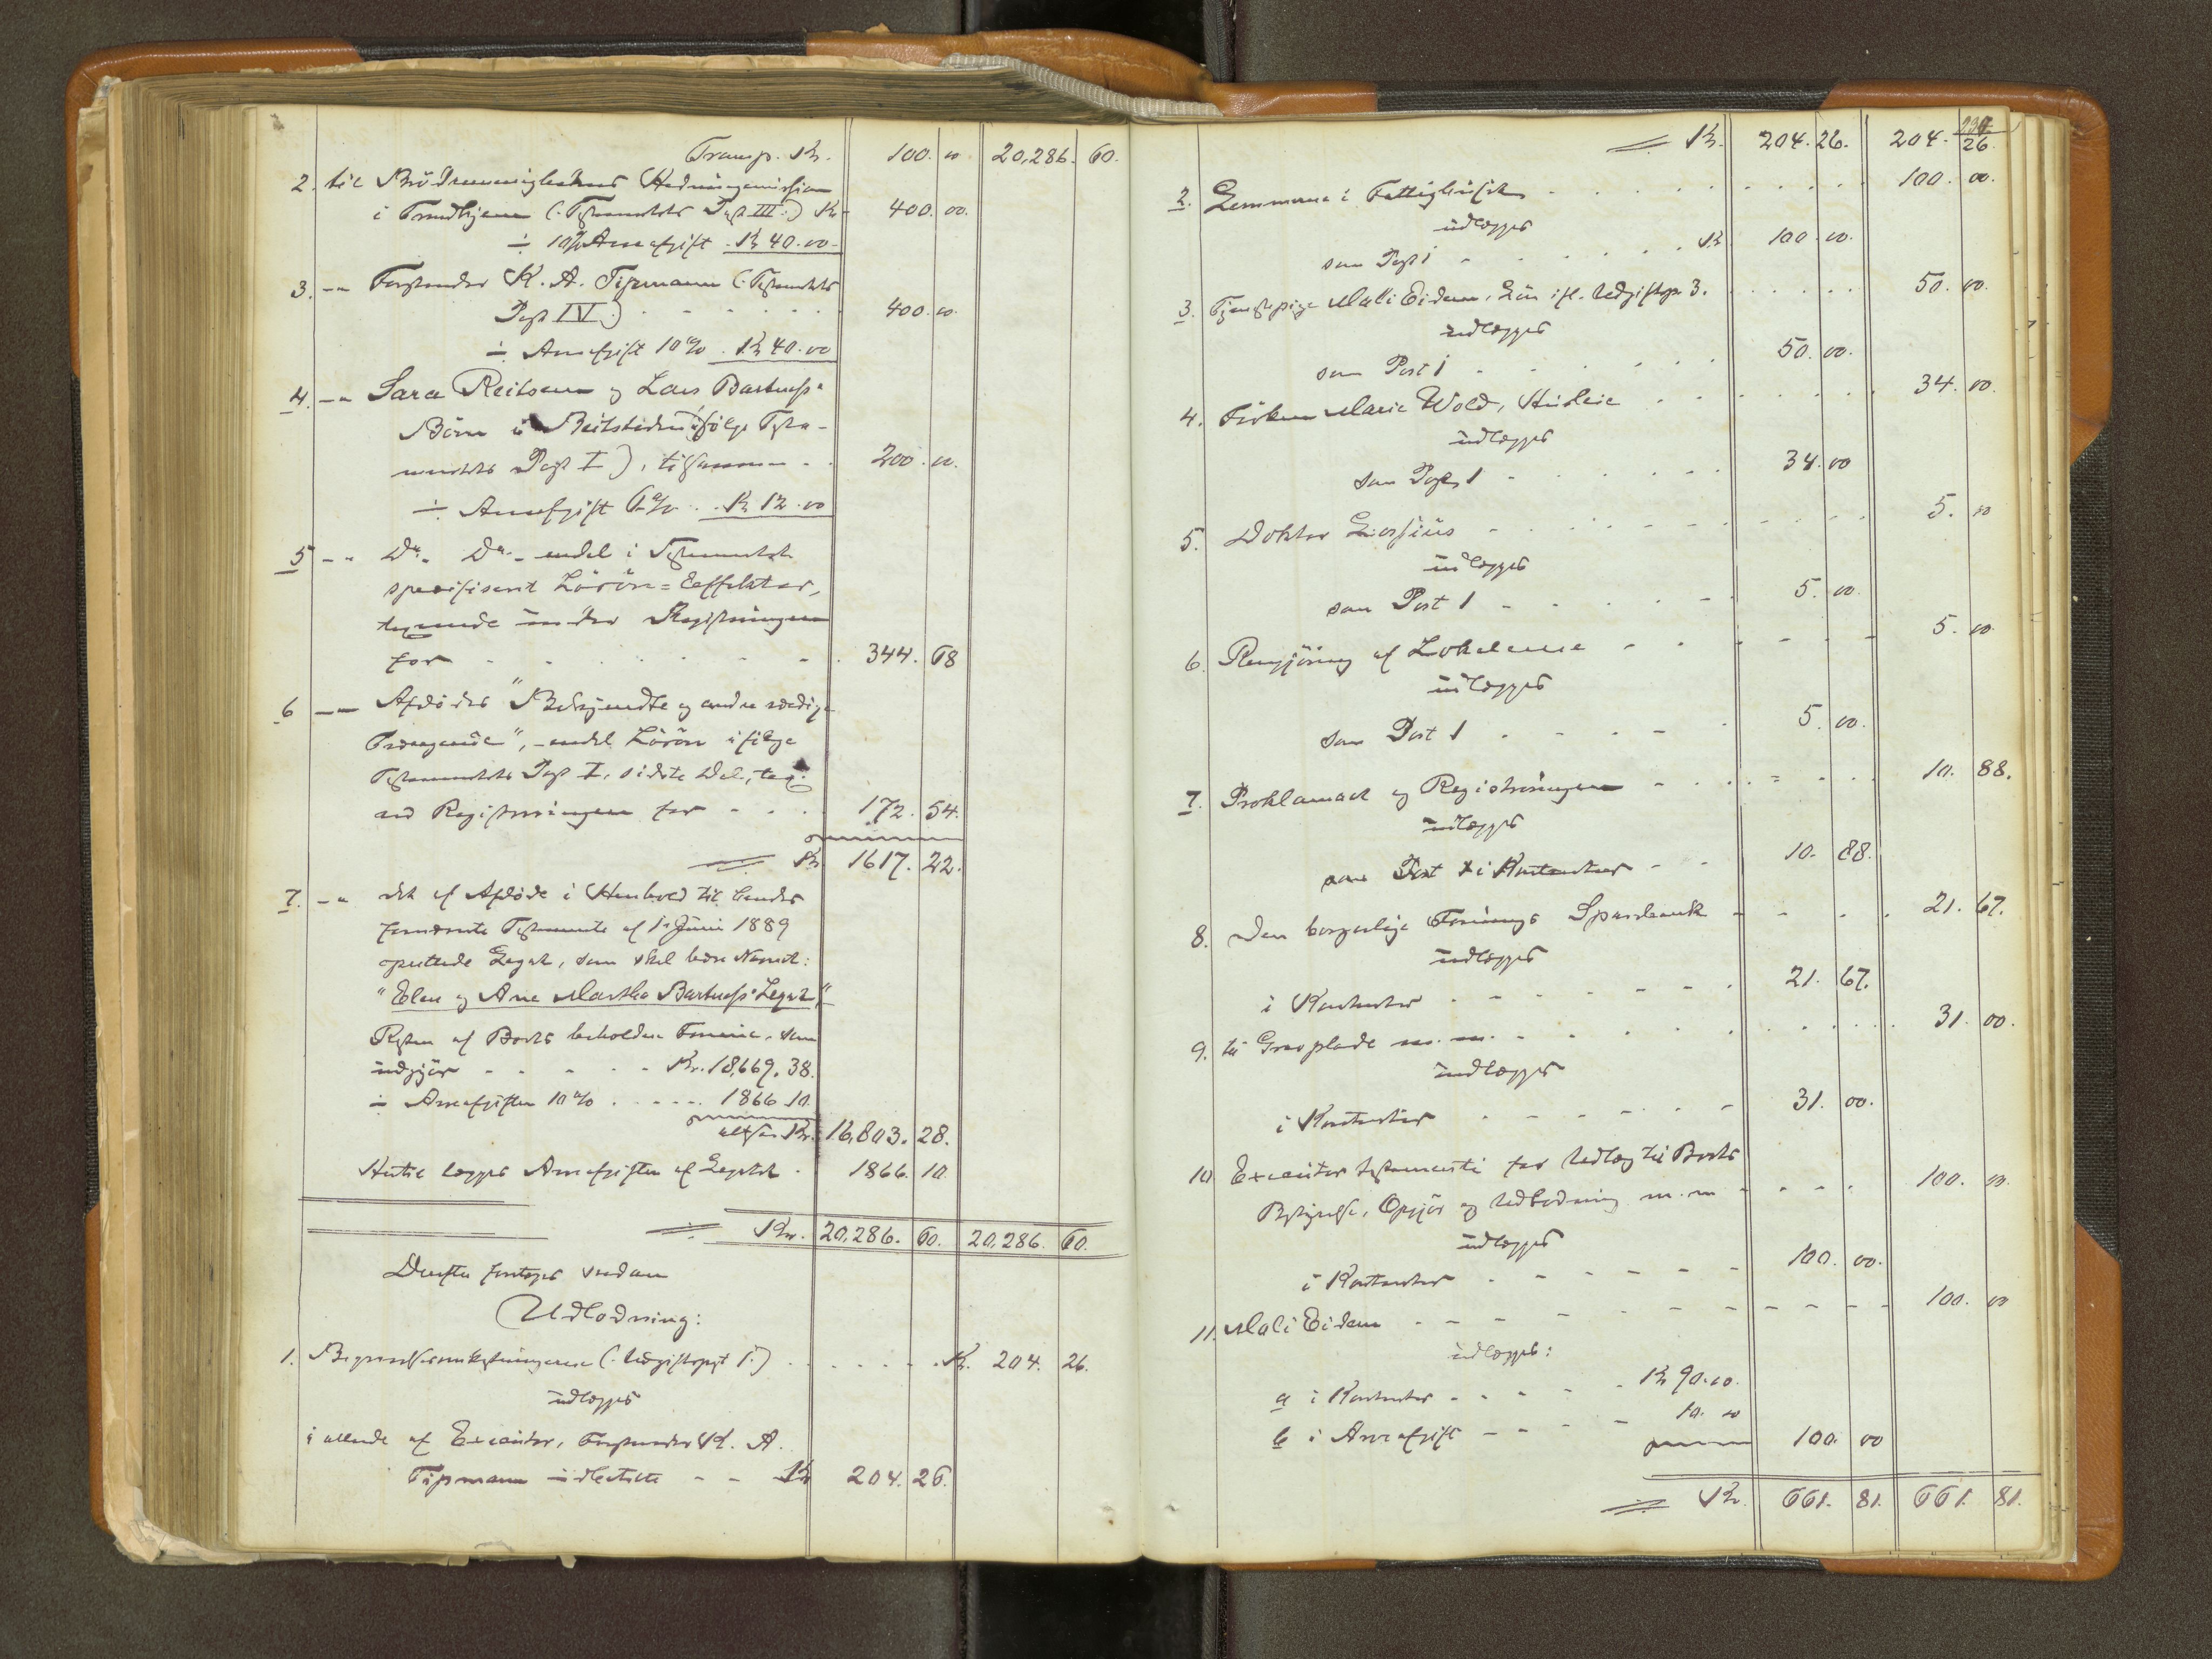 Transp. Kr. 100. 00 20,286. 60.
2. til Brødremenighedens Hedningemission
i Trondhjem (Testamentets Post III.) Kr 400. 00.
÷ 10% Arveafgift Kr 40.00
3. -"- Forstander K. A. Tipmann (Testamentets
Post IV.) 400. 00.
÷ Arveafgift 10% Kr 40.00
4. -"- Sara Reitsen og Lars Bartnes's
Børn i Beitstaden (ifølge Testa-
mentets Post I), tilsammen 200. 00.
÷ Arveafgift 6% Kr 12.00
5 -"- Do. Do. - endel i Testamentet
specifiseret Løsøre=Eeffekter,
tagende under Registreringen
for 344. 68
6 -"- Afdødes "Bekjendte og andre værdige
Trængende", - endel Løsøre ifølge
Testamentets Post I, sidste Del, tax.
ved Registreringen for 172. 54.
Kr 1617. 22.
7. -"- det af Afdøde i Henhold til hendes
fornævnte Testamente af 1. Juni 1889
oprettede Legat, som skal bære Navnet:
"Elen og Ane Martha Bartnes's Legat,"
Resten af Boets beholdne Formue, som
udgjør Kr. 18,669. 38.
÷ Arveafgiften 10% 1866 10.
altsaa Kr. 16,803. 28.
Hertil lægges Arveafgiften af Legatet 1866. 10
Kr. 20,286. 60. 20,286. 60.
Derefter foretoges saadan
Udlodning:
1. Begravelsesomkostningerne (Udgiftspost 1.) Kr. 204. 26.
udlægges
i allerede af Executor, Forstander K. A.
Tipmann udbetalte Kr 204. 26.
234
Kr. 204. 26. 204. 26
2. Lemmerne i Fattighuset 100. 00.
udlægges
som Post 1 Kr 100. 00.
3. Tjenestepige Mali Eidem, Løn ifl. Udgiftspost 3. 50. 00.
udlægges
som Post 1 50. 00.
4. Frøken Marie Wold, Husleie 34. 00
udlægges
som Post 1 34. 00
5. Doktor Lossius 5. 00
udlægges
som Post 1 5. 00
6. Rengjøring af Lokalerne 5. 00.
udlægges
som Post 1 5. 00.
7. Proklamaet og Registreringen 10. 88.
udlægges
som Post 1 i Kontanter 10. 88.
8. Den borgerlige Forenings Sparebank 21. 67.
udlægges
i Kontanter 21. 67.
9. til Gravplade m. m. 31. 00.
udlægges
i Kontanter 31. 00.
10 Executor testamenti for Udlæg til Boets
Bestyrelse, Opgjør og Udlodning m. m 100. 00.
udlægges
i Kontanter 100. 00.
11. Mali Eidem 100. 00
udlægges:
a i Kontanter Kr 90.00.
b i Arveafgift 10. 00
100. 00
Kr. 661. 81. 661. 81.